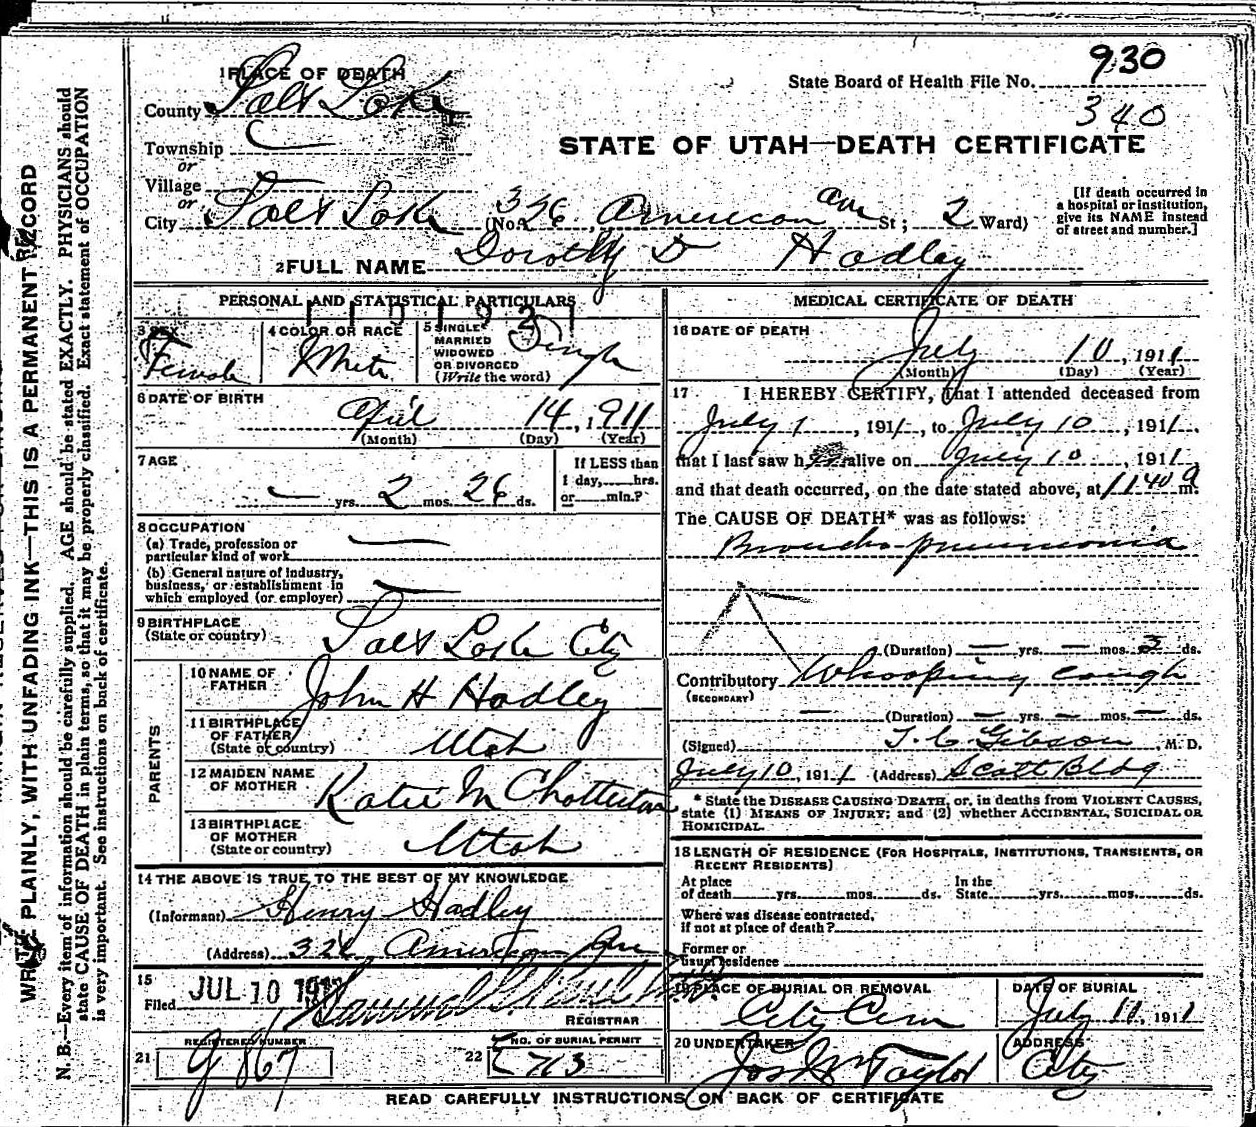 930
State Board of Health File No.
340
1 PLACE OF DEATH
County Salt Lake
STATE OF UTAH—DEATH CERTIFICATE
Township
or
Village
or
City Salt Lake (No. 326 American Ave St; 2 Ward)
[If death occurred in
a hospital or institution,
give its NAME instead
of street and number.]
2 FULL NAME Dorothy D Hadley
PERSONAL AND STATISTICAL PARTICULARS
3 SEX
Female
4 COLOR OR RACE
White
5 SINGLE
MARRIED
WIDOWED
OR DIVORCED
(Write the word)
Single
6 DATE OF BIRTH
April 14, 1911
(Month) (Day) (Year)
7 AGE
— yrs. 2 mos. 26 ds.
If LESS than
1 day, hrs.
or min.?
8 OCCUPATION
(a) Trade, profession or
particular kind of work —
(b) General nature of industry,
business, or establishment in
which employed (or employer) —
9 BIRTHPLACE
(State or country) Salt Lake City
PARENTS
10 NAME OF
FATHER John H Hadley
11 BIRTHPLACE
OF FATHER
(State or country) Utah
12 MAIDEN NAME
OF MOTHER Katie M Chatterton
13 BIRTHPLACE
OF MOTHER
(State or country) Utah
14 THE ABOVE IS TRUE TO THE BEST OF MY KNOWLEDGE
(Informant) Henry Hadley
(Address) 326 American Ave
15
Filed JUL 10 191
REGISTRAR
21 REGISTERED NUMBER
867
22 NO. OF BURIAL PERMIT
713
MEDICAL CERTIFICATE OF DEATH
16 DATE OF DEATH
July 10, 1911
(Month) (Day) (Year)
17 I HEREBY CERTIFY, that I attended deceased from
July 1, 1911, to July 10, 1911,
that I last saw h alive on July 10, 1911
and that death occurred, on the date stated above, at 1140 a m.
The CAUSE OF DEATH* was as follows:
Broncho-pneumonia
(Duration) — yrs. — mos. 3 ds.
Contributory Whooping cough
(SECONDARY)
— (Duration) — yrs. — mos. — ds.
(Signed) T. C. Gibson, M. D.
July 10, 1911 (Address) Scott Bldg
* State the DISEASE CAUSING DEATH, or, in deaths from VIOLENT CAUSES,
state (1) MEANS OF INJURY; and (2) whether ACCIDENTAL, SUICIDAL OR
HOMICIDAL.
18 LENGTH OF RESIDENCE (FOR HOSPITALS, INSTITUTIONS, TRANSIENTS, OR
RECENT RESIDENTS)
At place
of death yrs. mos. ds. In the
State yrs. mos. ds.
Where was disease contracted,
if not at place of death?
Former or
usual residence
19 PLACE OF BURIAL OR REMOVAL
City Cem
DATE OF BURIAL
July 11, 1911
20 UNDERTAKER
Jos Wm Taylor
ADDRESS
City
READ CAREFULLY INSTRUCTIONS ON BACK OF CERTIFICATE
WRITE PLAINLY, WITH UNFADING INK—THIS IS A PERMANENT RECORD
N. B.—Every item of information should be carefully supplied. AGE should be stated EXACTLY. PHYSICIANS should
state CAUSE OF DEATH in plain terms, so that it may be properly classified. Exact statement of OCCUPATION
is very important. See instructions on back of certificate.